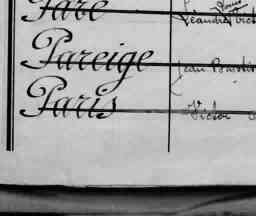 Fare
Louis
Léandre Vict
Pareige
Jean Baptist
Paris
Victor